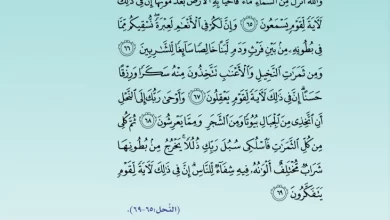 وَٱللَّهُ أَنزَلَ مِنَ ٱلسَّمَآءِ مَآءً فَأَحۡيَا بِهِ ٱلۡأَرۡضَ بَعۡدَ مَوۡتِهَآۚ إِنَّ فِي ذَٰلِكَ
لَأٓيَةً لِّقَوۡمٍ يَسۡمَعُونَ ٦٥ وَإِنَّ لَكُمۡ فِي ٱلۡأَنۡعَٰمِ لَعِبۡرَةًۖ نُّسۡقِيكُم مِّمَّا
فِي بُطُونِهِۦ مِنۢ بَيۡنِ فَرۡثٍ وَدَمٍ لَّبَنًا خَالِصًا سَآئِغًا لِّلشَّٰرِبِينَ ٦٦
وَمِن ثَمَرَٰتِ ٱلنَّخِيلِ وَٱلۡأَعۡنَٰبِ تَتَّخِذُونَ مِنۡهُ سَكَرًا وَرِزۡقًا
حَسَنًاۚ إِنَّ فِي ذَٰلِكَ لَأٓيَةً لِّقَوۡمٍ يَعۡقِلُونَ ٦٧ وَأَوۡحَىٰ رَبُّكَ إِلَى ٱلنَّحۡلِ
أَنِ ٱتَّخِذِي مِنَ ٱلۡجِبَالِ بُيُوتًا وَمِنَ ٱلشَّجَرِ وَمِمَّا يَعۡرِشُونَ ٦٨ ثُمَّ كُلِي
مِن كُلِّ ٱلثَّمَرَٰتِ فَٱسۡلُكِي سُبُلَ رَبِّكِ ذُلُلًاۚ يَخۡرُجُ مِنۢ بُطُونِهَا
شَرَابٌ مُّخۡتَلِفٌ أَلۡوَٰنُهُۥ فِيهِ شِفَآءٌ لِّلنَّاسِۚ إِنَّ فِي ذَٰلِكَ لَأٓيَةً لِّقَوۡمٍ
يَتَفَكَّرُونَ ٦٩
(النَّحل: ٦٥-٦٩).